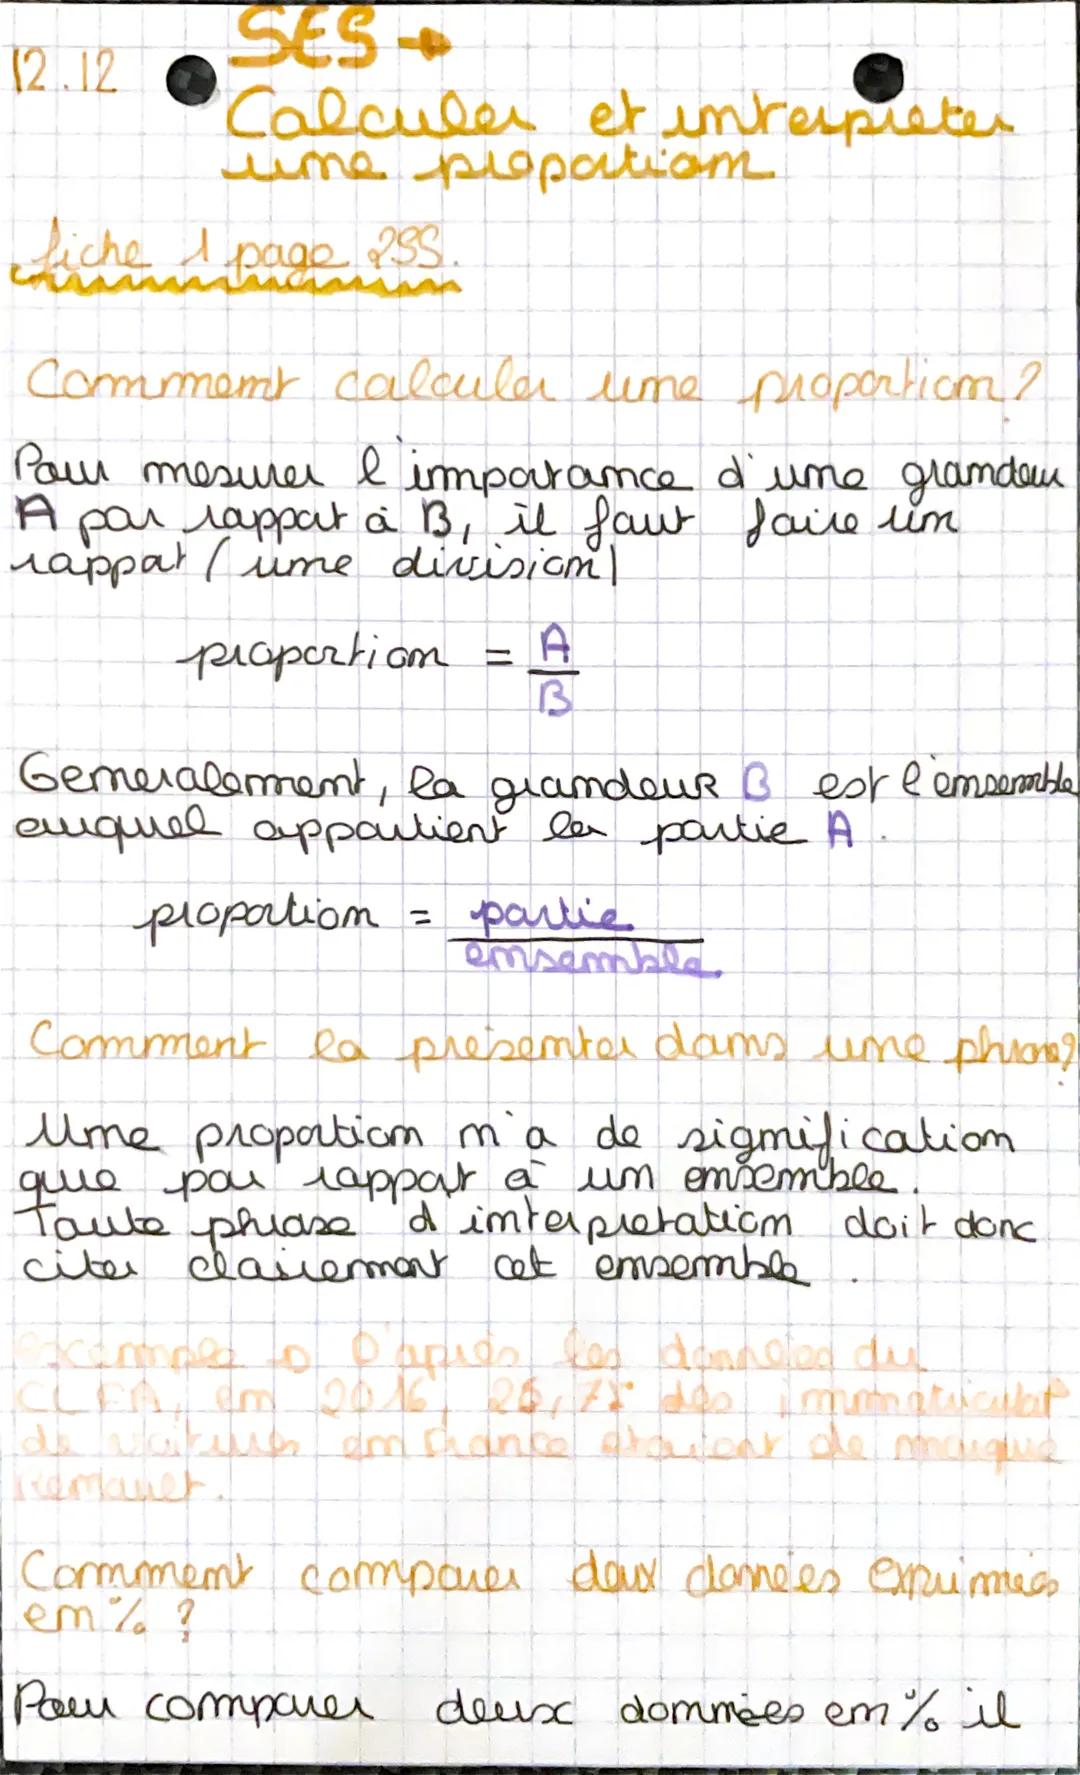 SES →
12.12
Calculer et interpreter
une proportion
fiche 1 page 299.
Comment calculer une proportion ?
Pour mesurer l'importance d'une grandeur
A par rapport à B, il faut faire un
rapport (une division)
proportion = A
B
Generalement, la grandeur B est l'ensemble
auquel appartient la partie A.
proportion = partie
ensemble
Comment la présenter dans une phrase ?
Une proportion n'a de signification
que par rapport à un ensemble.
Toute phrase d'interpretation doit donc
citer clairement cet ensemble.
exemple → D'après les données du
en 2016, des immatriculat°
de voitures en France étaient de marque
Renault.
Comment comparer deux données exprimées
en % ?
Pour comparer deux données en % il